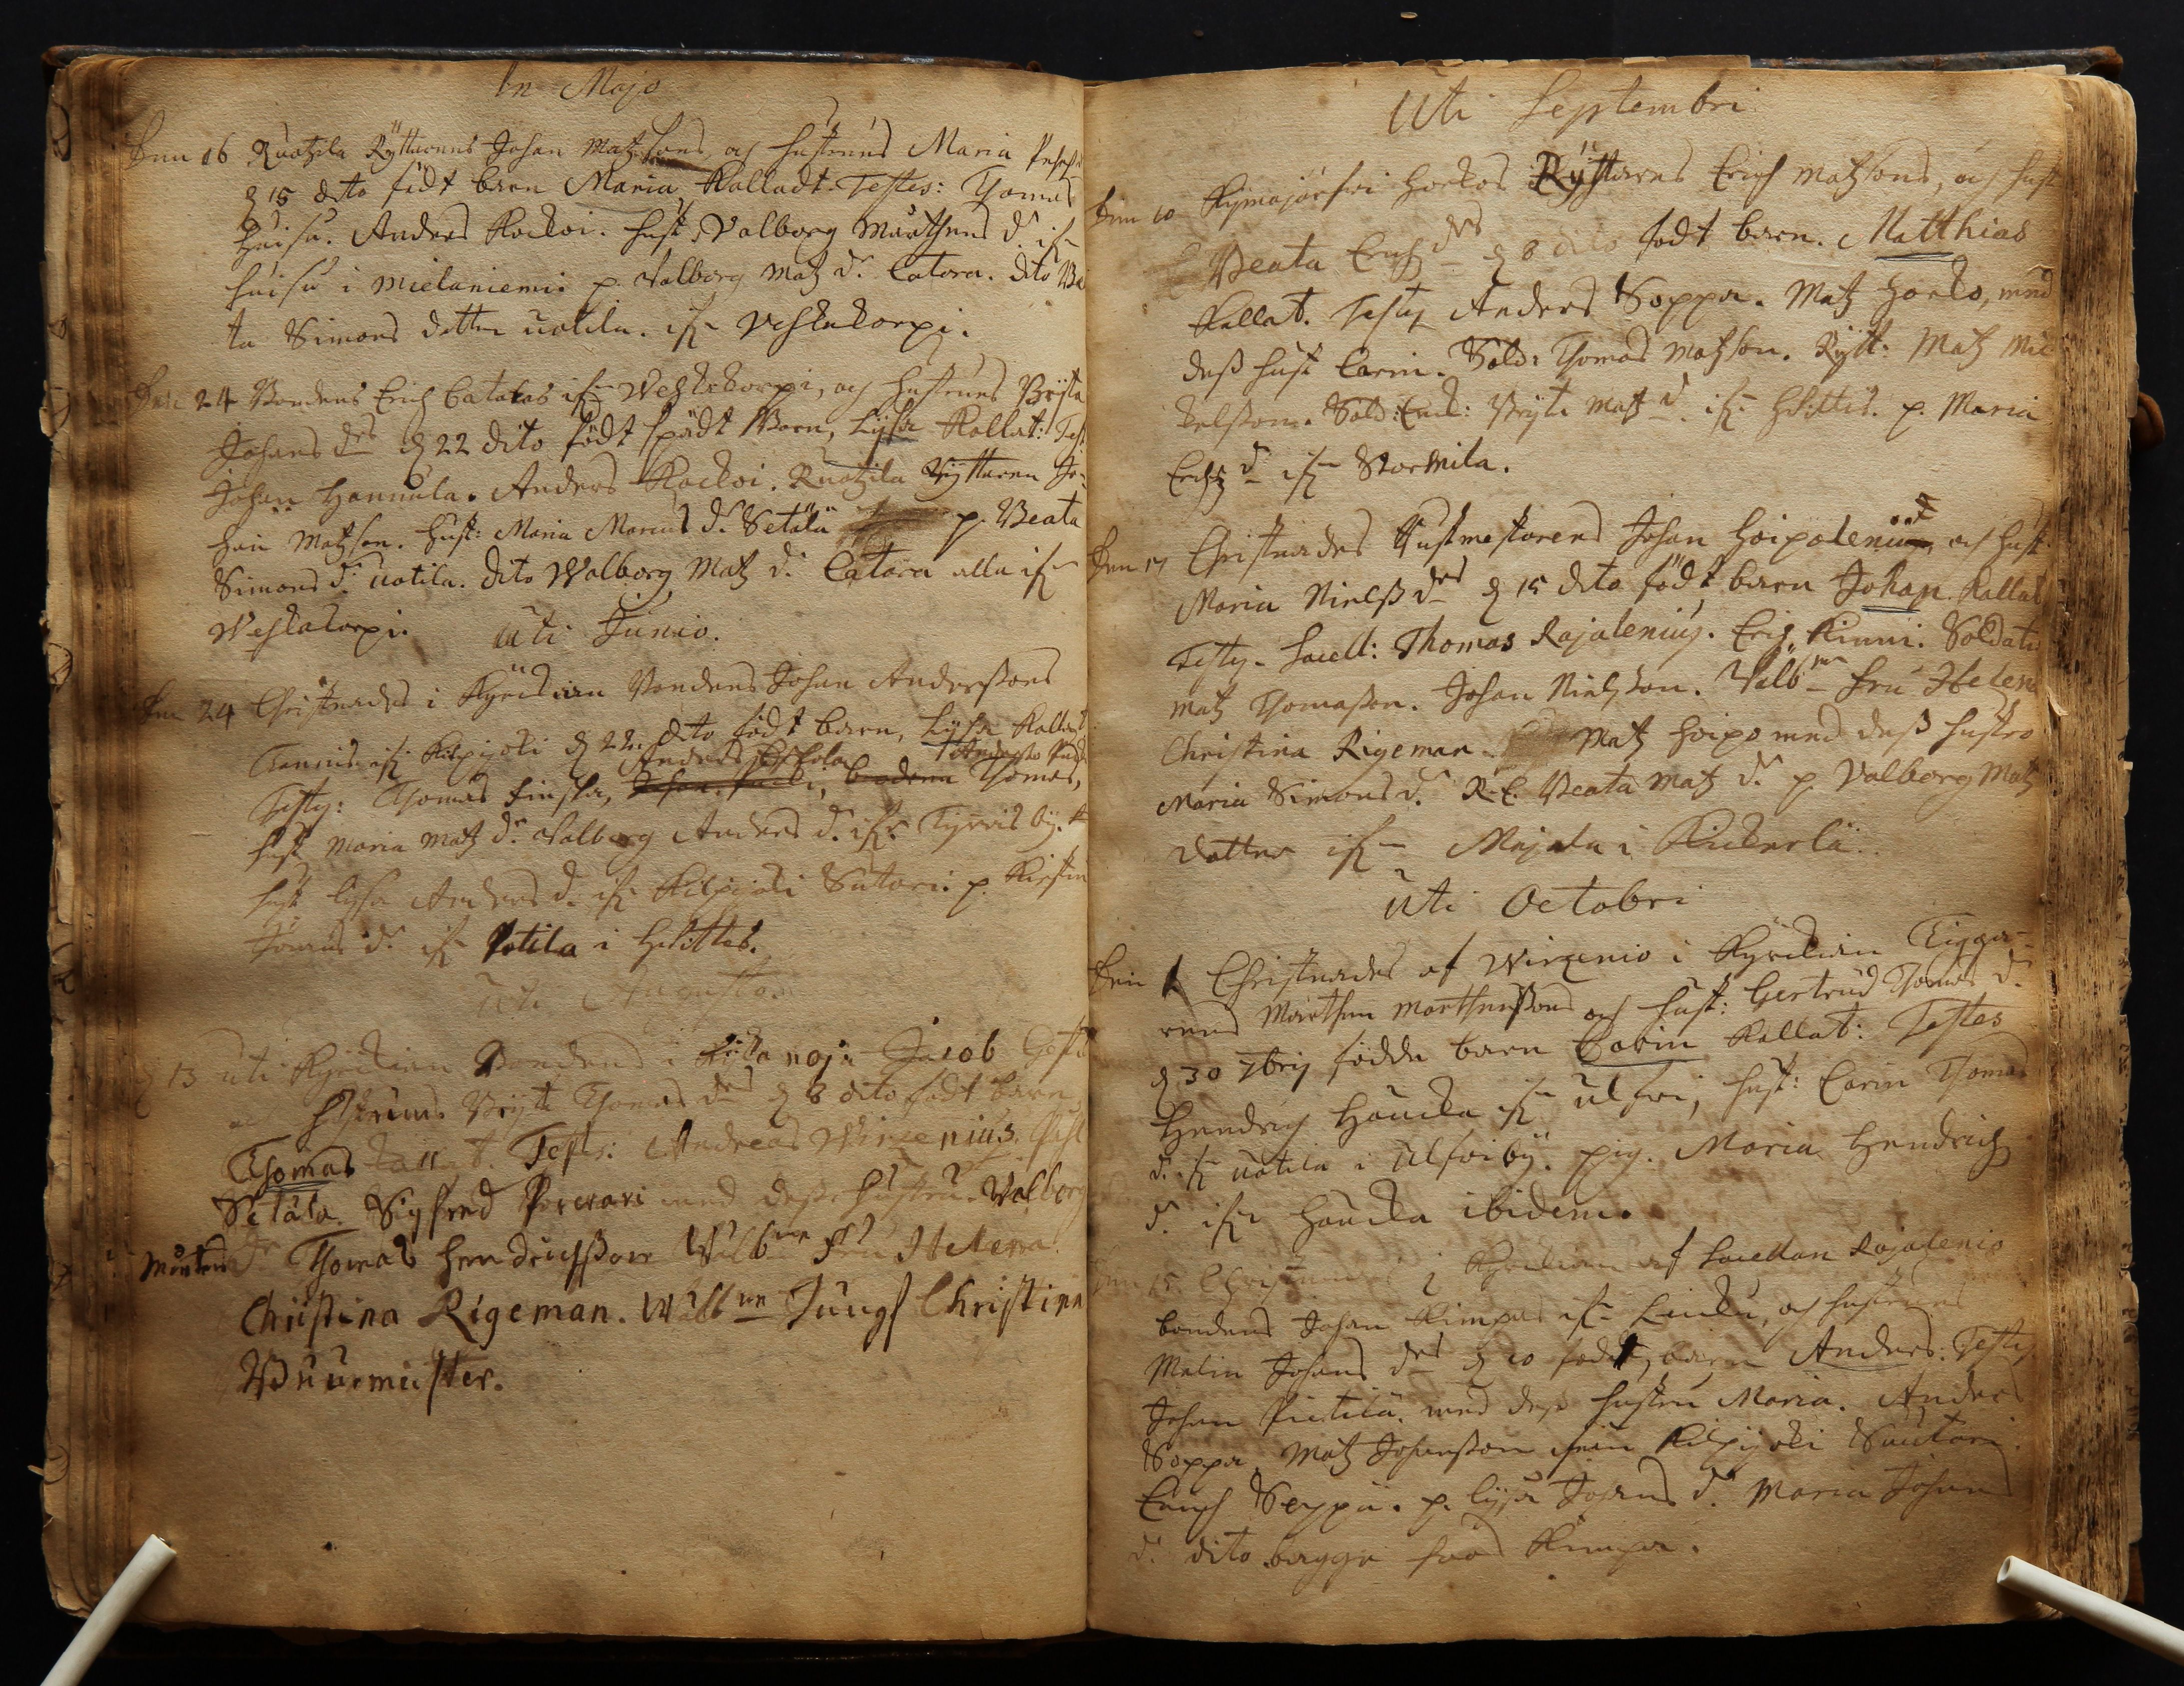 In Majo
Den 16 Ruotzila Ryttarens Johan Matzsons, och hustruns Maria
d 15 dito födt barn Maria Kalladt. Testes: Thomas
Huisu. Anders Kockoi. hust. Valborg Mårthens d. if:n
huisu i Mielaniemi p. Valborg Matz d:r Catara. dito Bea
ta Simons dotter uotila. if:n Veskakorpi.
Den 24 Bondens Erich Cataras if:n Weskakorpi, och hustruns Brijta
Johans d:rs d 22 dito födt spädt Barn, Lijsa Kallat: Test.
Johan Hannula. Anders Kockoi. Ruotzila Ryttaren Jo-
han Matzson. hust: Maria Marcus d:r Setälä p. Beata
Simons d:r uotila. dito Walborg Matz d:r Catara alla if:n
Weskakorpi.
uti Junio.
Den 24 Christnades i Kyrckian Bondens Johan Anderssons
if:n Kilpijoki d 22 dito födt barn, Lijsa Kallat
Anders Eskola
Testes: Thomas Finska, Thomas,
hust Maria Matz d:r Valborg Anders d. if:n Tyrvis by.
hust lijsa Anders d. if:n Kilpijoki Sutari. p. Kirstin
Tomas d:r if:n Potila i hlittes.
uti Augusto.
d 13 uti Kyrckian Bondens i noja Jacob
hustruns Brijta Thomas d:rs d 8 dito födt barn
Thomas kallat. Testes: Andreas Wircenius.
Setälä. Sigfred Porwari med dess hustru. Valborg
Mårtens d:r Thomas Hendrichsson Wälb:ne Fru Helena
Christina Rigeman. Wälb:ne Jungf Christina
Buurmeister.
Uti Septembri
Den 10 Kymajärfwi horkos Ryttarens Erich Matzsons, och hust
Beata Erichs d:rs d 8 dito födt barn. Matthias
Kallat. Testes Anders Soppa. Matz Horko, med
dess hust Carin. Sold: Thomas Matzson. Rytt: Matz Mic
kelsson. Sold: Enk: Brijta Matz d. if:n hlittis. p. Maria
Erichz d. if:n Stormila.
Den 17 Christnades Rustmestarens Johan Hoipolenii, och hust.
Maria Nielss d:rs d 15 dito födt barn Johan. Kallat
Testes. Sacell: Thomas Rajalenius. Erich Kinni. Soldaten
Matz Thomasson. Johan Nielsson. Välb:ne Fru Helena
Christina Rigeman. Matz Hoipo med dess hustro
Maria Simons d:r R. E. Beata Matz d:r p Valborg Matz
dotter if:n Majala i Kickerlä.
Uti Octobri
Den 1 Christnades af Wirzenio i Kyrckian Tigga-
rens Mårthen Mårthenssons och hust: Gertrud Thomas d:r
d 30 7bris födde barn Carin Kallat: Testes
Hendrich Haucka if:n ulfvi, hust: Carin Thomas
d. if:n uotila i Ulfvi by. pig. Maria Hendrichz
d. if:n Haucka ibidem.
Den 15 Christnades i Kyrckian af Sacellan Rajalenio
bondens Johan Kimpas if:n Linku, och hustruns
Malin Johans d:rs d 10 födt, barn Anders: Testes
Johan Pietilä. med dess hustru Maria. Anders
Soppa. Matz Johansson ifrån Kilpijoki Sautari.
Erich Seppä. p. lijsa Johans d:r Maria Johans
d. dito begge från Kimpa.